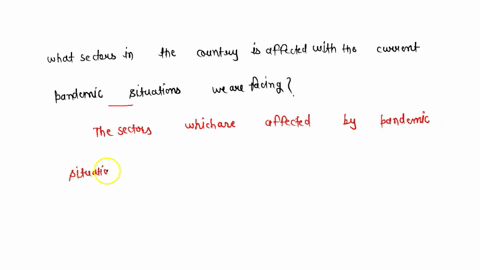 what sectors in the country is affected with the current
pandemic situations we are facing?
The sectors which are affected by pandemic
situatio